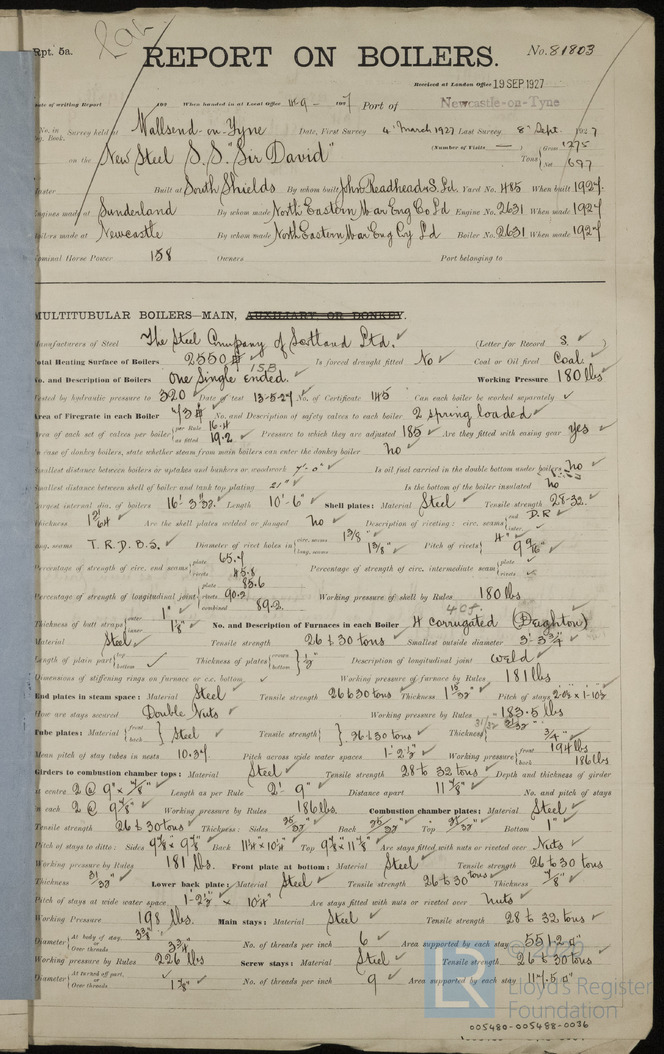 Rpt. 5a.
REPORT ON BOILERS.
No. 81803
Received at London Office 19 SEP. 1927
Date of writing Report 192 When handed in at Local Office 192 7 Port of Newcastle-on-Tyne
No. in Reg. Book. Survey held at Wallsend-on-Tyne Date, First Survey 4 March 1927 Last Survey 8 Sept. 1927
(Number of Visits — )
on the New Steel S.S. "Sir David" Tons { Gross 1275 Net 697
Master Built at South Shields By whom built John Readhead & S. Ld. Yard No. 485 When built 1927.
Engines made at Sunderland By whom made North Eastern Mar Eng Co Ld Engine No. 2631 When made 1927
Boilers made at Newcastle By whom made North Eastern Mar Eng Coy Ld Boiler No. 2631 When made 1927
Nominal Horse Power 158 Owners Port belonging to
MULTITUBULAR BOILERS—MAIN, AUXILIARY OR DONKEY.
Manufacturers of Steel The Steel Company of Scotland Ltd. (Letter for Record S. )
Total Heating Surface of Boilers 2550 Is forced draught fitted No Coal or Oil fired Coal
No. and Description of Boilers One Single ended. 1SB Working Pressure 180 lbs
Tested by hydraulic pressure to 320 Date of test 13-5-27 No. of Certificate 145 Can each boiler be worked separately
Area of Firegrate in each Boiler 73 No. and Description of safety valves to each boiler 2 spring loaded
Area of each set of valves per boiler { per Rule 16.4 as fitted 19.2 Pressure to which they are adjusted 185 Are they fitted with easing gear yes
In case of donkey boilers, state whether steam from main boilers can enter the donkey boiler no
Smallest distance between boilers or uptakes and bunkers or woodwork Is oil fuel carried in the double bottom under boilers no
Smallest distance between shell of boiler and tank top plating 21" Is the bottom of the boiler insulated no
Largest internal dia. of boilers 16'- 3 Length 10'-6" Shell plates: Material Steel Tensile strength 28-32.
Thickness 1 21/64 Are the shell plates welded or flanged no Description of riveting: circ. seams { end D.R inter.
long. seams T.R.D.B.S. Diameter of rivet holes in { circ. seams 1 3/8" long. seams 1 3/8" Pitch of rivets { 4" 9 9/16"
Percentage of strength of circ. end seams { plate 65.7 rivets 45.8 Percentage of strength of circ. intermediate seam { plate rivets
Percentage of strength of longitudinal joint { plate 85.6 rivets 90.2 combined 89.2 Working pressure of shell by Rules 180 lbs
Thickness of butt straps { outer 1" inner 1 1/8" No. and Description of Furnaces in each Boiler 4 corrugated (Deighton)
Material Steel Tensile strength 26 to 30 tons Smallest outside diameter 3'- 3 3/4"
Length of plain part { top bottom Thickness of plates { crown bottom } 1/2" Description of longitudinal joint weld
Dimensions of stiffening rings on furnace or c.c. bottom Working pressure of furnace by Rules 181 lbs
End plates in steam space: Material Steel Tensile strength 26 to 30 tons Thickness 1 15/32" Pitch of stays
How are stays secured Double Nuts Working pressure by Rules 183.5 lbs
Tube plates: Material { front back } Steel Tensile strength { 26 to 30 tons Thickness { 31/32" 3/4"
Mean pitch of stay tubes in nests 10.37 Pitch across wide water spaces 1'- 2 1/2" Working pressure { front 194 lbs back 186 lbs
Girders to combustion chamber tops: Material Steel Tensile strength 28 to 32 tons Depth and thickness of girder
at centre 2 @ 9" x 7/8" Length as per Rule 2'- 9" Distance apart 11 7/8" No. and pitch of stays
in each 2 @ 9 7/8" Working pressure by Rules 186 lbs. Combustion chamber plates: Material Steel
Tensile strength 26 to 30 tons Thickness: Sides 25/32" Back 25/32" Top 25/32" Bottom 1"
Pitch of stays to ditto: Sides 9 7/8 x 9 7/8" Back 11 1/4 x 10 1/4" Top 9 7/8 x 11 7/8" Are stays fitted with nuts or riveted over Nuts
Working pressure by Rules 181 lbs. Front plate at bottom: Material Steel Tensile strength 26 to 30 tons
Thickness 31/32" Lower back plate: Material Steel Tensile strength 26 to 30 tons Thickness 7/8"
Pitch of stays at wide water space 1'-2 1/2" x 10 1/4" Are stays fitted with nuts or riveted over nuts
Working Pressure 198 lbs. Main stays: Material Steel Tensile strength 28 to 32 tons
Diameter { At body of stay, or Over threads 3 3/8" 3 3/4" No. of threads per inch 6 Area supported by each stay 551.2"
Working pressure by Rules 226 lbs Screw stays: Material Steel Tensile strength 26 to 30 tons
Diameter { At turned off part, or Over threads 1 7/8" No. of threads per inch 9 Area supported by each stay 117.5"
Lloyd's Register
Foundation
005480-005488-0036